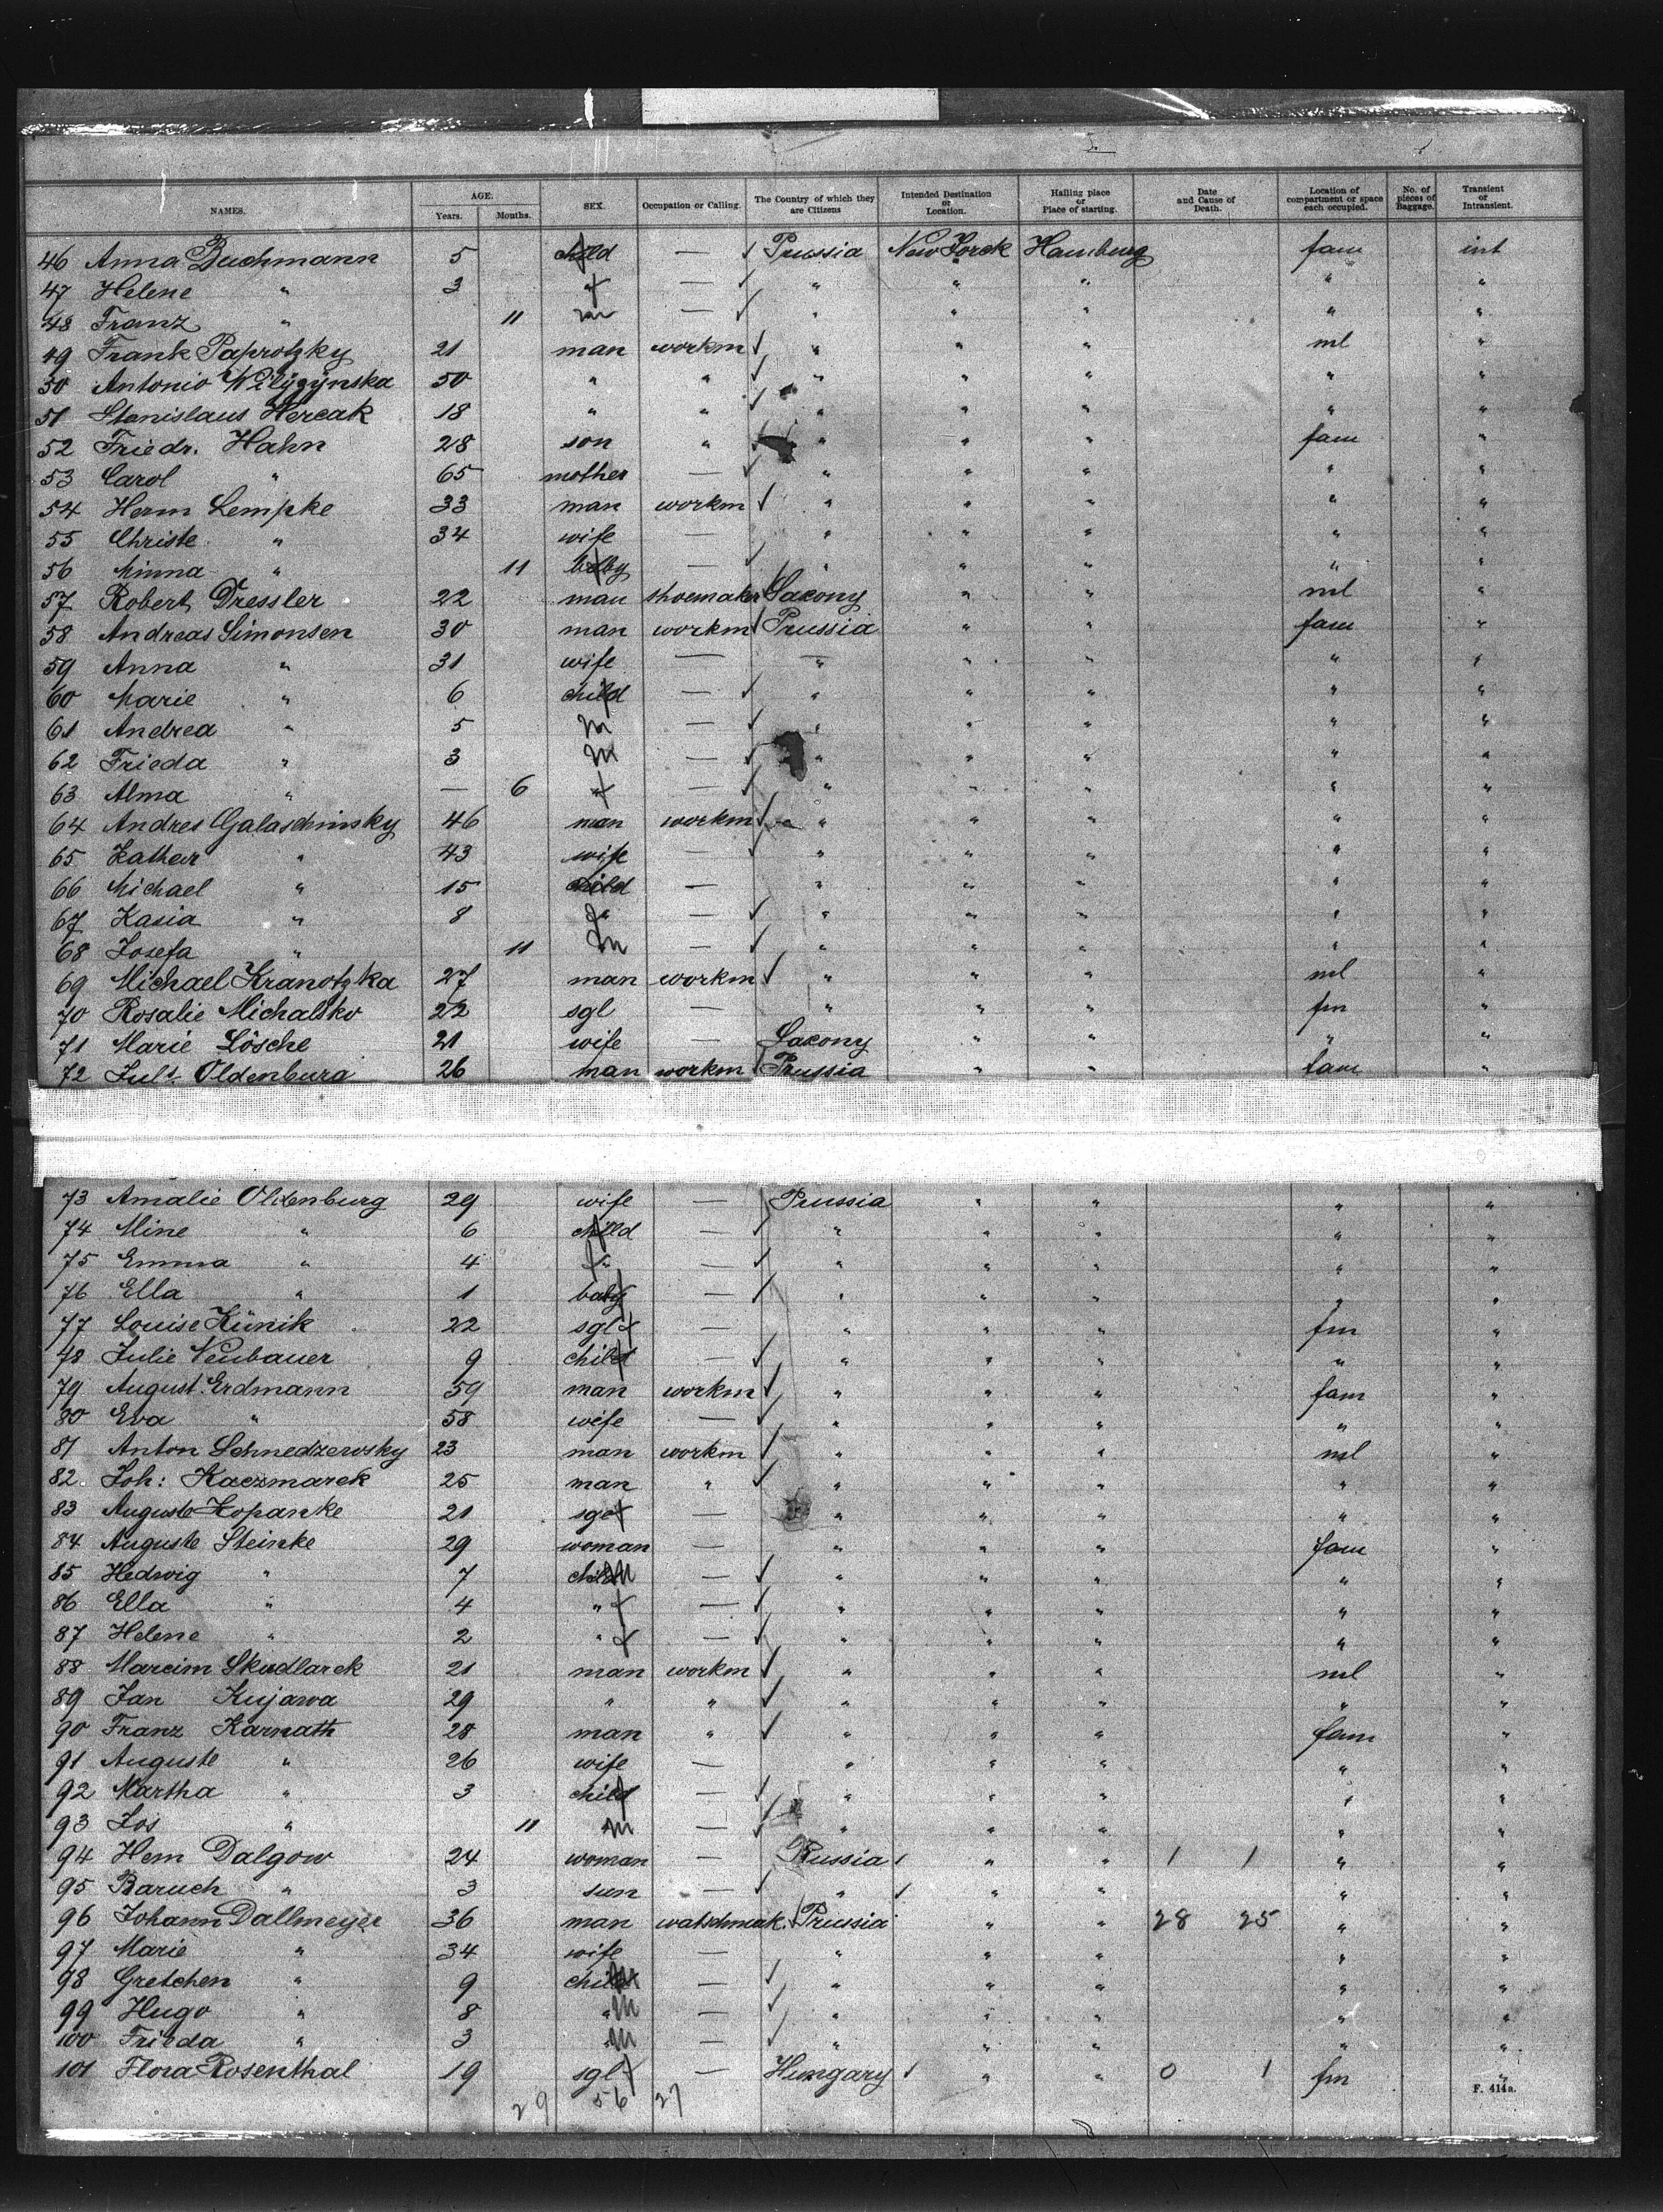 NAMES. AGE. Years. Months. SEX. Occupation or Calling. The Country of which they are Citizens Intended Destination or Location. Hailing place or Place of starting. Date and Cause of Death. Location of compartment or space each occupied. No. of pieces of Baggage. Transient or Intransient.
46 Anna Buchmann 5 child — Prussia New Yorck Hamburg fam int
47 Helene " 3 " — " " " " "
48 Franz " 11 m — " " " " "
49 Frank Paprotzky 21 man workm " " " ml "
50 Antonio 50 " " " " " " "
51 Stanislaus Hercak 18 " " " " " " "
52 Friedr. Hahn 28 son " " " " fam "
53 Carol " 65 mother — " " " " "
54 Herm Lempke 33 man workm " " " " "
55 Christe " 34 wife — " " " " "
56 Minna " 11 baby — " " " " "
57 Robert Dressler 22 man shoemaker Saxony " " ml "
58 Andreas Simonsen 30 man workm Prussia " " fam "
59 Anna " 31 wife — " " " " "
60 Marie " 6 child — " " " " "
61 Andrea " 5 m — " " " " "
62 Frieda " 3 m — " " " " "
63 Alma " — 6 " — " " " " "
64 Andres Galaschinsky 46 man workm " " " " "
65 Kathar " 43 wife — " " " " "
66 Michael " 15 child — " " " " "
67 Kasia " 8 " — " " " " "
68 Josefa " 11 m — " " " " "
69 Michael Kranotzka 27 man workm " " " ml "
70 Rosalie Michalsko 22 sgl — " " " fm "
71 Marie Lösche 21 wife — Saxony " " " "
72 Juls. Oldenburg 26 man workm Prussia " " fam "
73 Amalie Oldenburg 29 wife — Prussia " " " "
74 Mine " 6 child — " " " " "
75 Emma " 4 " — " " " " "
76 Ella " 1 baby — " " " " "
77 Louise Künik 22 sgl — " " " fm "
78 Julie Neubauer 9 child — " " " " "
79 August Erdmann 59 man workm " " " fam "
80 Eva " 58 wife — " " " " "
81 Anton Schnedzewsky 23 man workm " " " ml "
82. Joh: Kaczmarek 25 man " " " " " "
83 Auguste Kopanke 21 sgl — " " " " "
84 Auguste Steinke 29 woman — " " " fam "
85 Hedwig " 7 child m — " " " " "
86 Ella " 4 " — " " " " "
87 Helene " 2 " — " " " " "
88 Marcim Skudlarek 21 man workm " " " ml "
89 Jan Kujawa 29 " " " " " " "
90 Franz Karnath 28 man " " " " fam "
91 Auguste " 26 wife — " " " " "
92 Martha " 3 child — " " " " "
93 Jos " 11 m — " " " " "
94 Hem Dalgow 24 woman — Russia " " 1 1 " "
95 Baruch " 3 sun — " " " " "
96 Johann Dallmeyer 36 man watschmak. Prussia " " 28 25 " "
97 Marie " 34 wife — " " " " "
98 Gretchen " 9 child — " " " " "
99 Hugo " 8 " m — " " " " "
100 Frieda " 3 " m — " " " " "
101 Flora Rosenthal 19 sgl — Hungary " " 0 1 fm "
29 56 27
F. 414a.